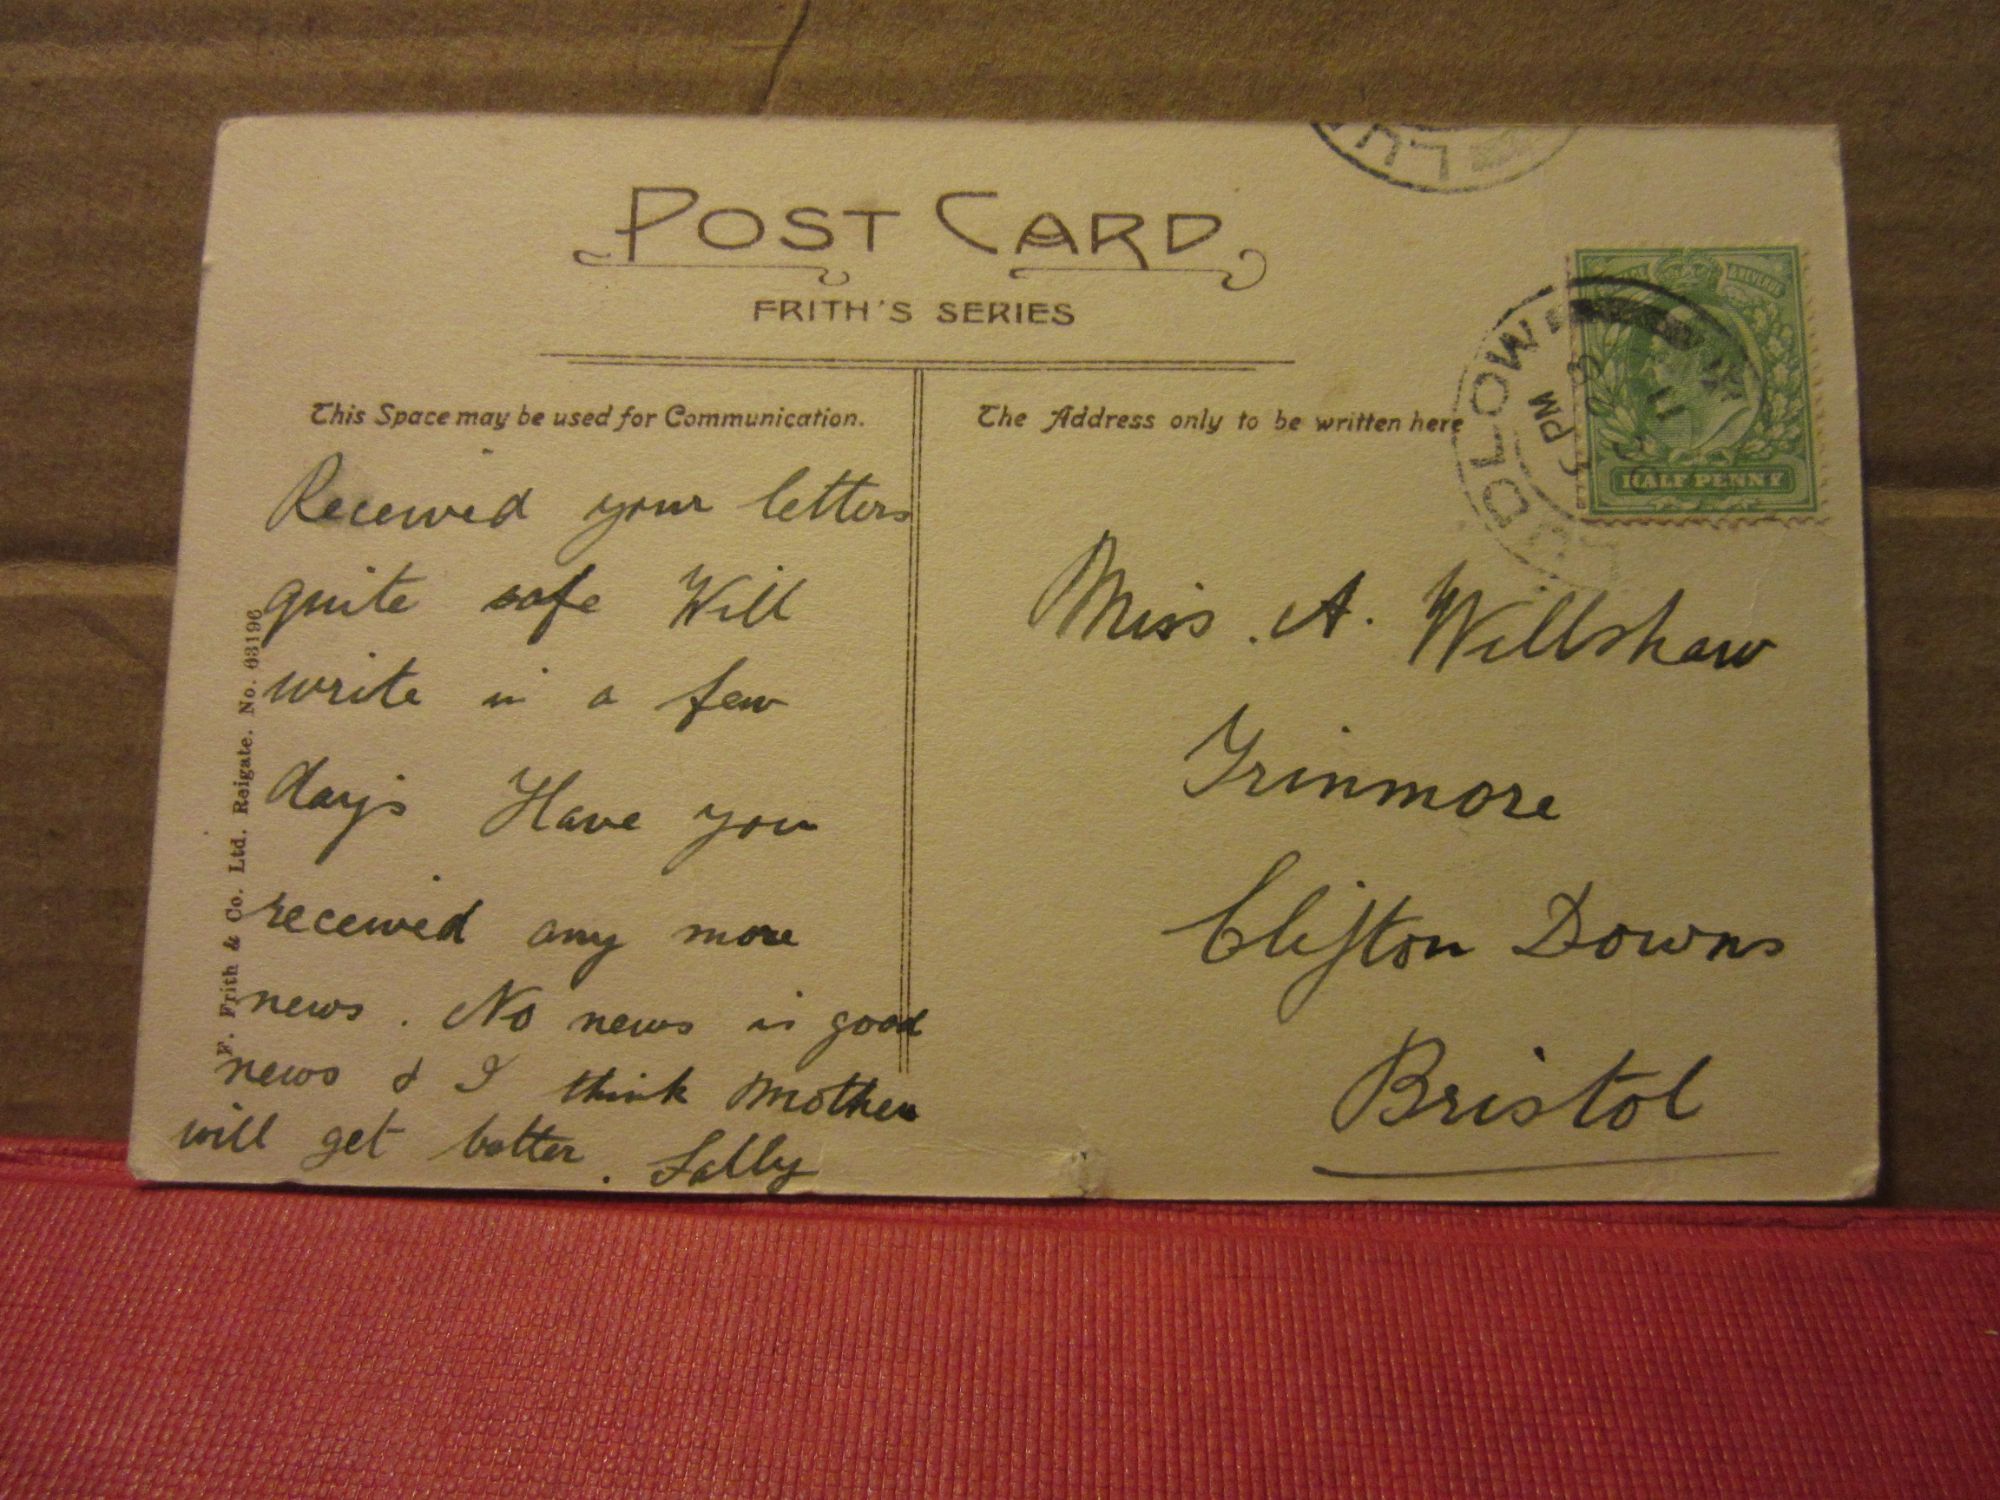 LU
POST CARD
FRITH'S SERIES
This Space may be used for Communication.
The Address only to be written here
UDLOW
5 PM
HALF PENNY
F. Frith & Co. Ltd. Reigate. No. 63196
Received your letters
quite safe Will
write in a few
days Have you
received any more
news. No news is good
news & I think Mother
will get better. Sally
Miss. A. Willshaw
Trinmore
Clifton Downs
Bristol